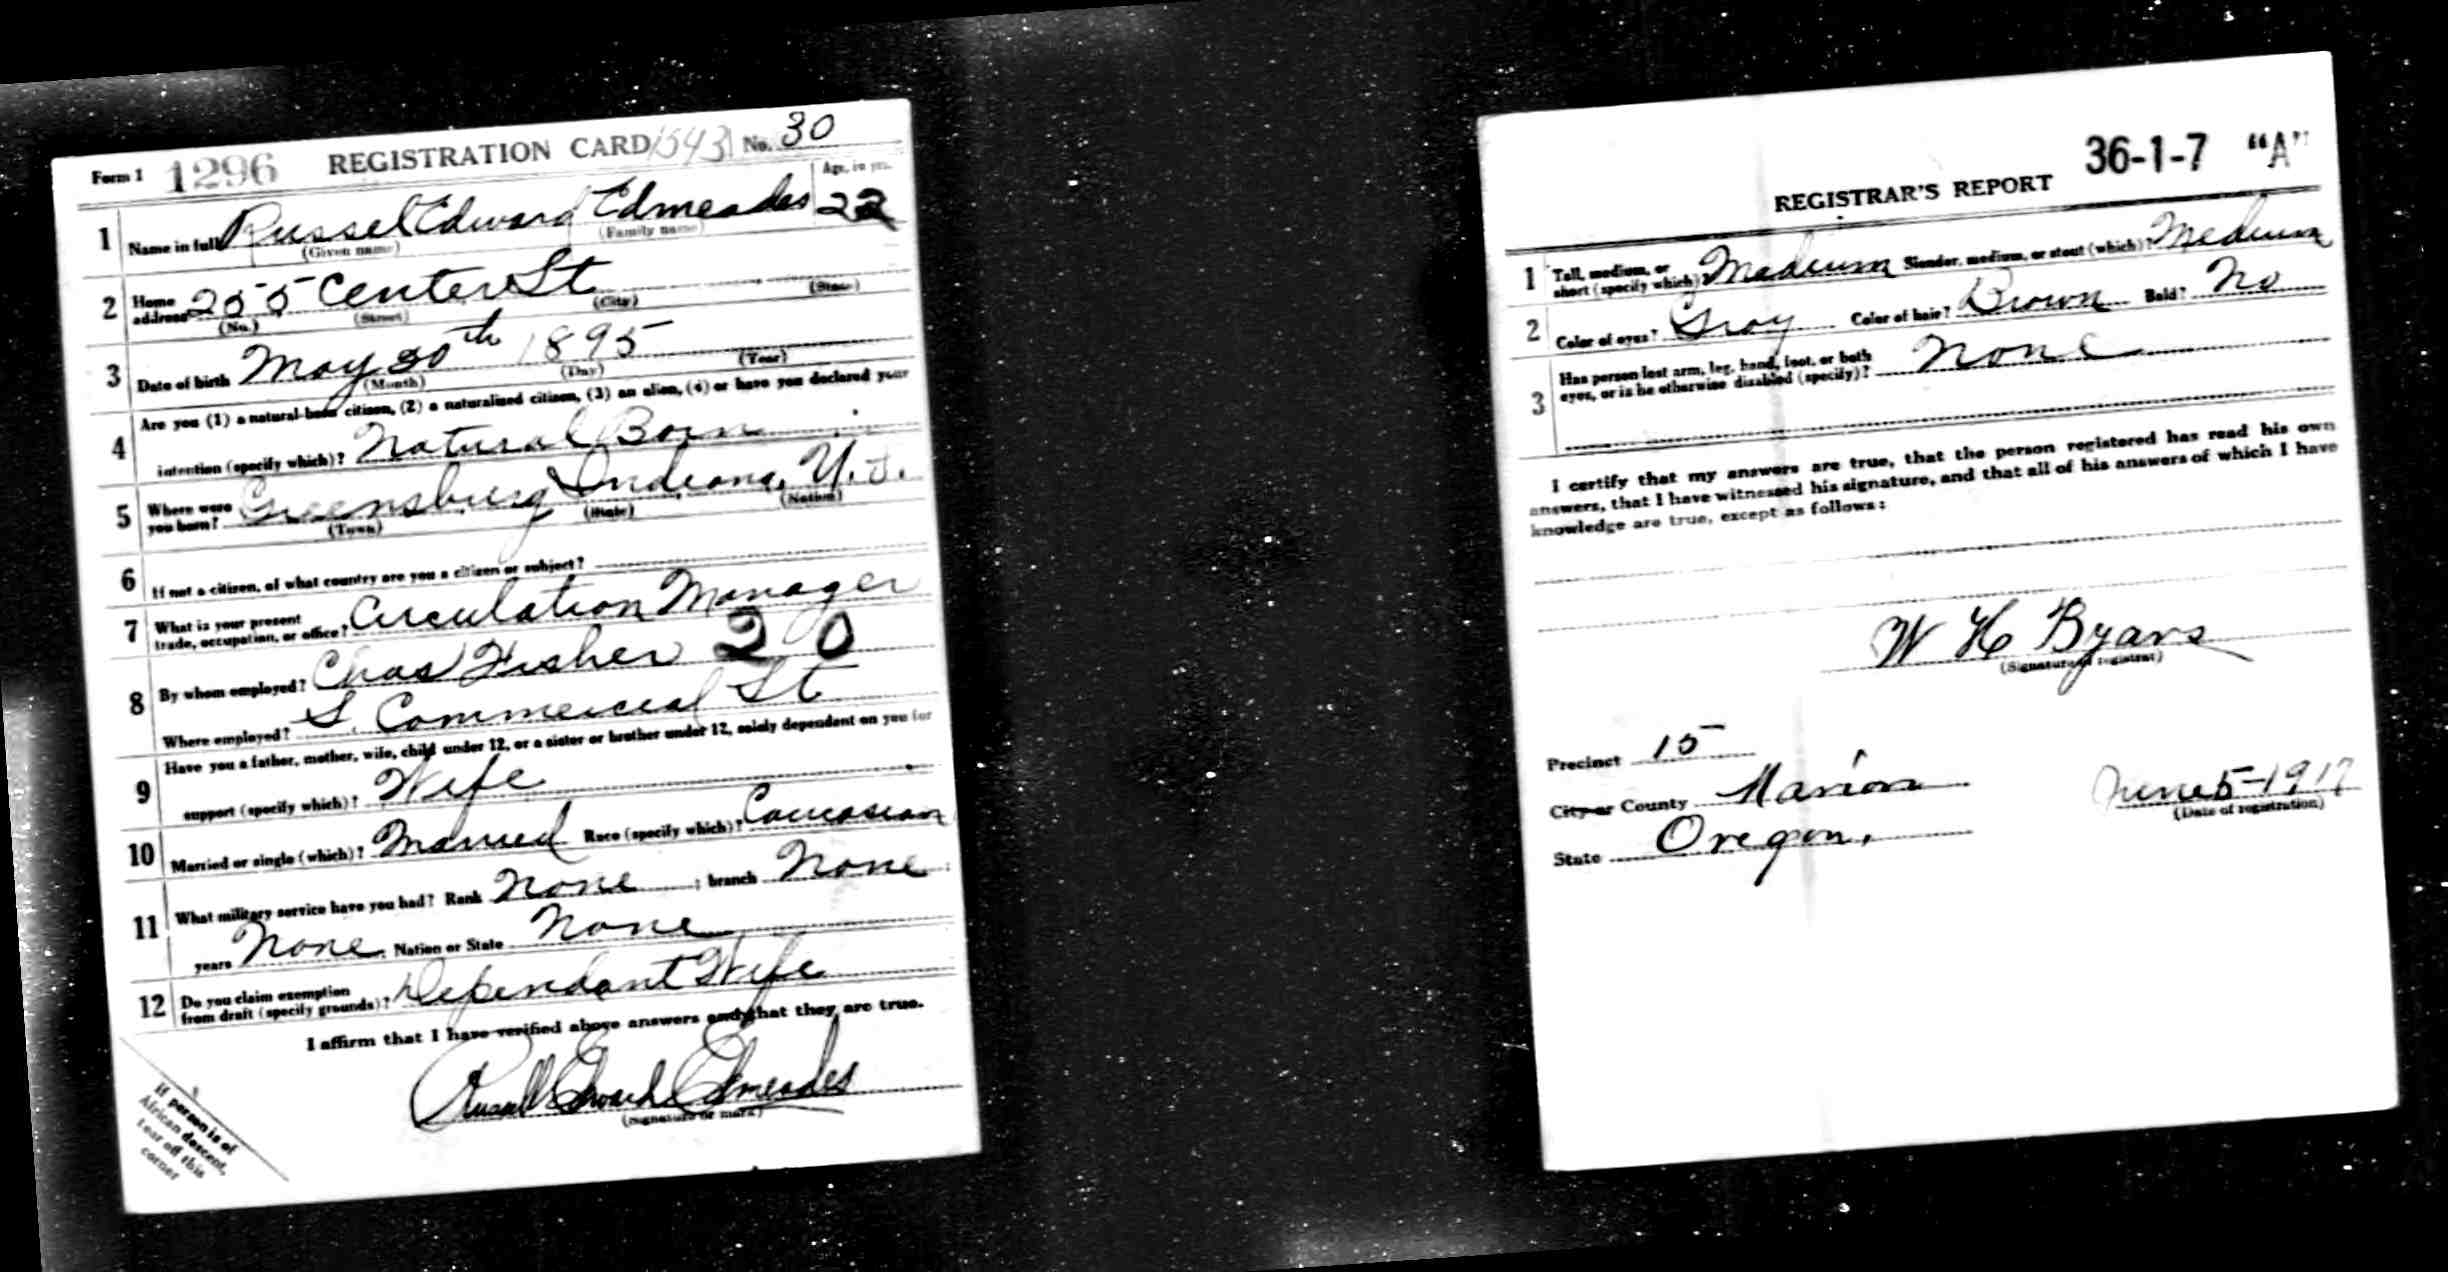 Form 1 1296 REGISTRATION CARD 1543 No. 30
Age, in yrs.
1 Name in full Russel Edward Edmeades 22
(Given name) (Family name)
2 Home address 255 Center St
(No.) (Street) (City) (State)
3 Date of birth May 30th 1895
(Month) (Day) (Year)
4 Are you (1) a natural-born citizen, (2) a naturalized citizen, (3) an alien, (4) or have you declared your
intention (specify which)? Natural Born
5 Where were you born? Greensburg Indiana, U.S.
(Town) (State) (Nation)
6 If not a citizen, of what country are you a citizen or subject?
7 What is your present trade, occupation, or office? Circulation Manager
8 By whom employed? Chas Fisher 20
Where employed? S. Commercial St
9 Have you a father, mother, wife, child under 12, or a sister or brother under 12, solely dependent on you for
support (specify which)? Wife
10 Married or single (which)? Married Race (specify which)? Caucasian
11 What military service have you had? Rank None ; branch None ;
years None ; Nation or State None
12 Do you claim exemption from draft (specify grounds)? Dependant Wife
I affirm that I have verified above answers and that they are true.
Russell Edward Edmeades
(signature or mark)
If person is of
African descent,
tear off this
corner
36-1-7 "A"
REGISTRAR'S REPORT
1 Tall, medium, or short (specify which)? Medium Slender, medium, or stout (which)? Medium
2 Color of eyes? Gray Color of hair? Brown Bald? No
3 Has person lost arm, leg, hand, foot, or both
eyes, or is he otherwise disabled (specify)? None
I certify that my answers are true, that the person registered has read his own
answers, that I have witnessed his signature, and that all of his answers of which I have
knowledge are true, except as follows:
W H Byars
(Signature of registrar)
Precinct 15
City or County Marion
State Oregon.
June 5-1917
(Date of registration)